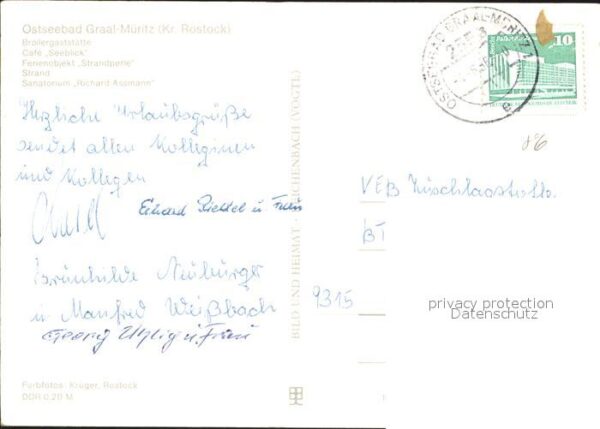 Ostseebad Graal-Müritz (Kr. Rostock)
Broilergaststätte
Café „Seeblick"
Ferienobjekt „Strandperle"
Strand
Sanatorium „Richard Assmann"
Herzliche Urlaubsgrüße
sendet allen Kolleginen
und Kollegen
u Frau
Brünhilde Neubürger
u Manfred Weißbach
Georg Uhlig u. Frau
Farbfotos: Krüger, Rostock
DDR 0,20 M
BILD UND HEIMAT REICHENBACH (VOGTL)
OSTSEEBAD GRAAL-MÜRITZ 1
10
86
VEB
BT
9315
privacy protection
Datenschutz